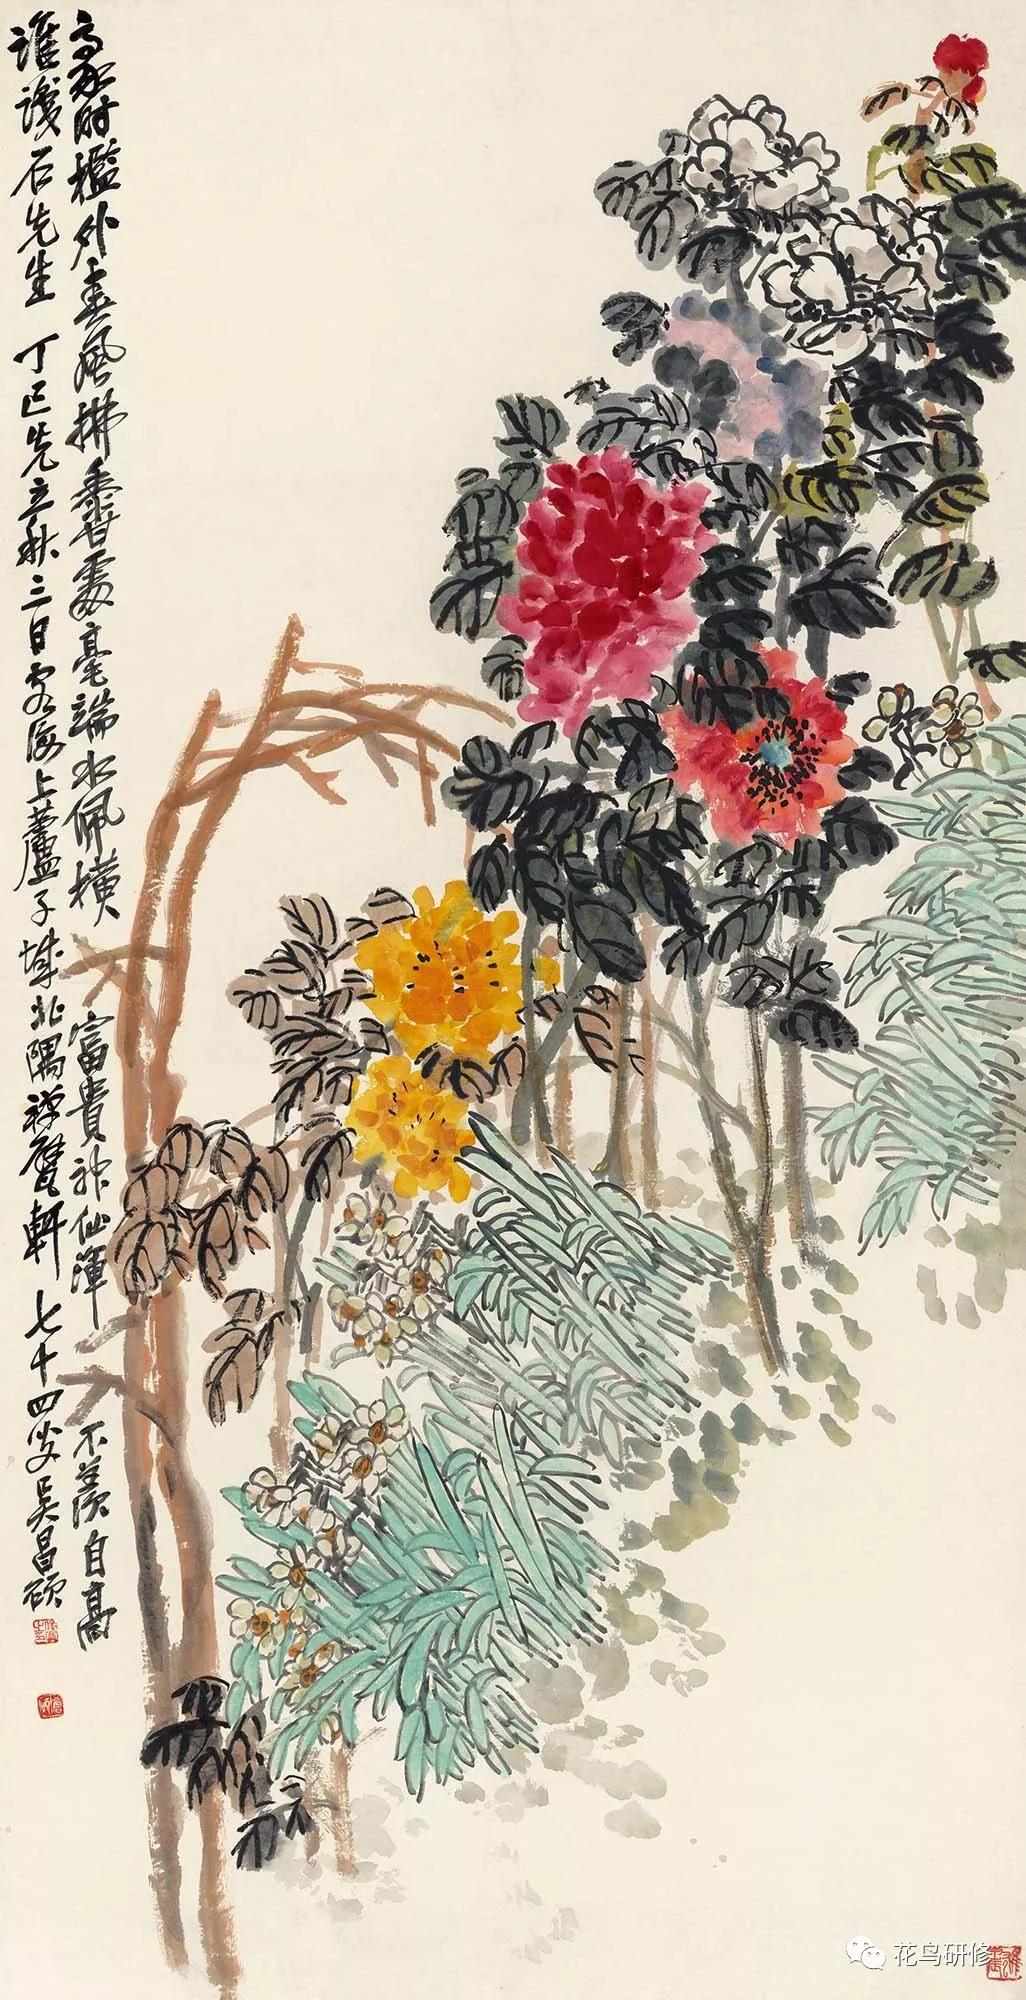 豪时槛外春风拂香处毫端水佩横
富贵神仙浑
不羡自高
谁识石先生 丁巳先立秋三日客海上芦子城北隅禅甓轩七十四叟吴昌硕
花鸟研修